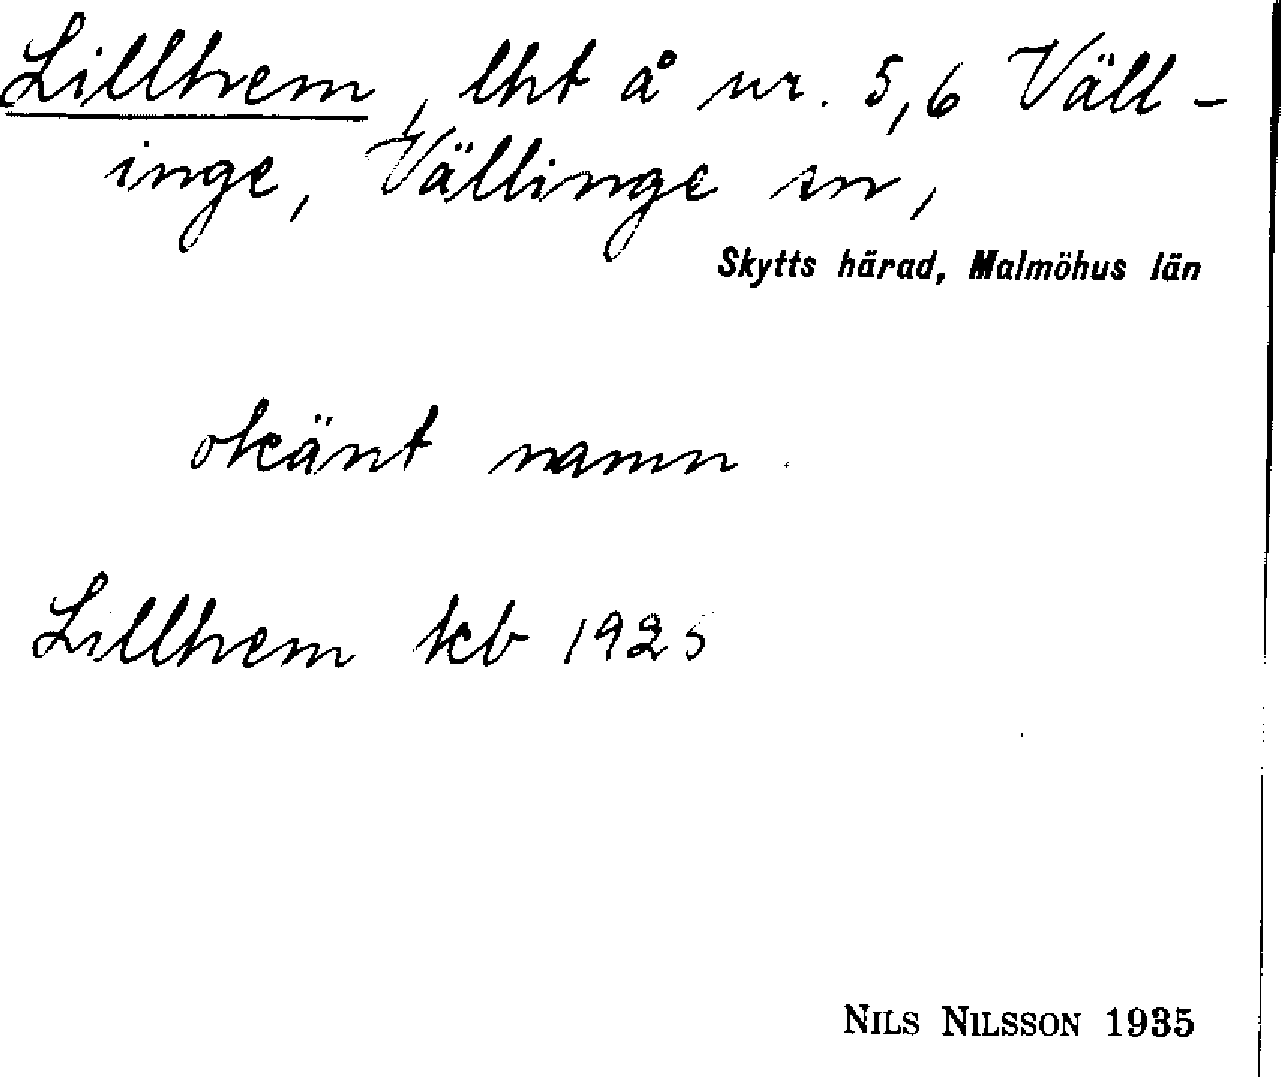 Lillhem, lht å nr. 5,6 Väll-
inge, Vällinge sn,
Skytts härad, Malmöhus län
okänt namn.
Lillhem kb 1925
NILS NILSSON 1935